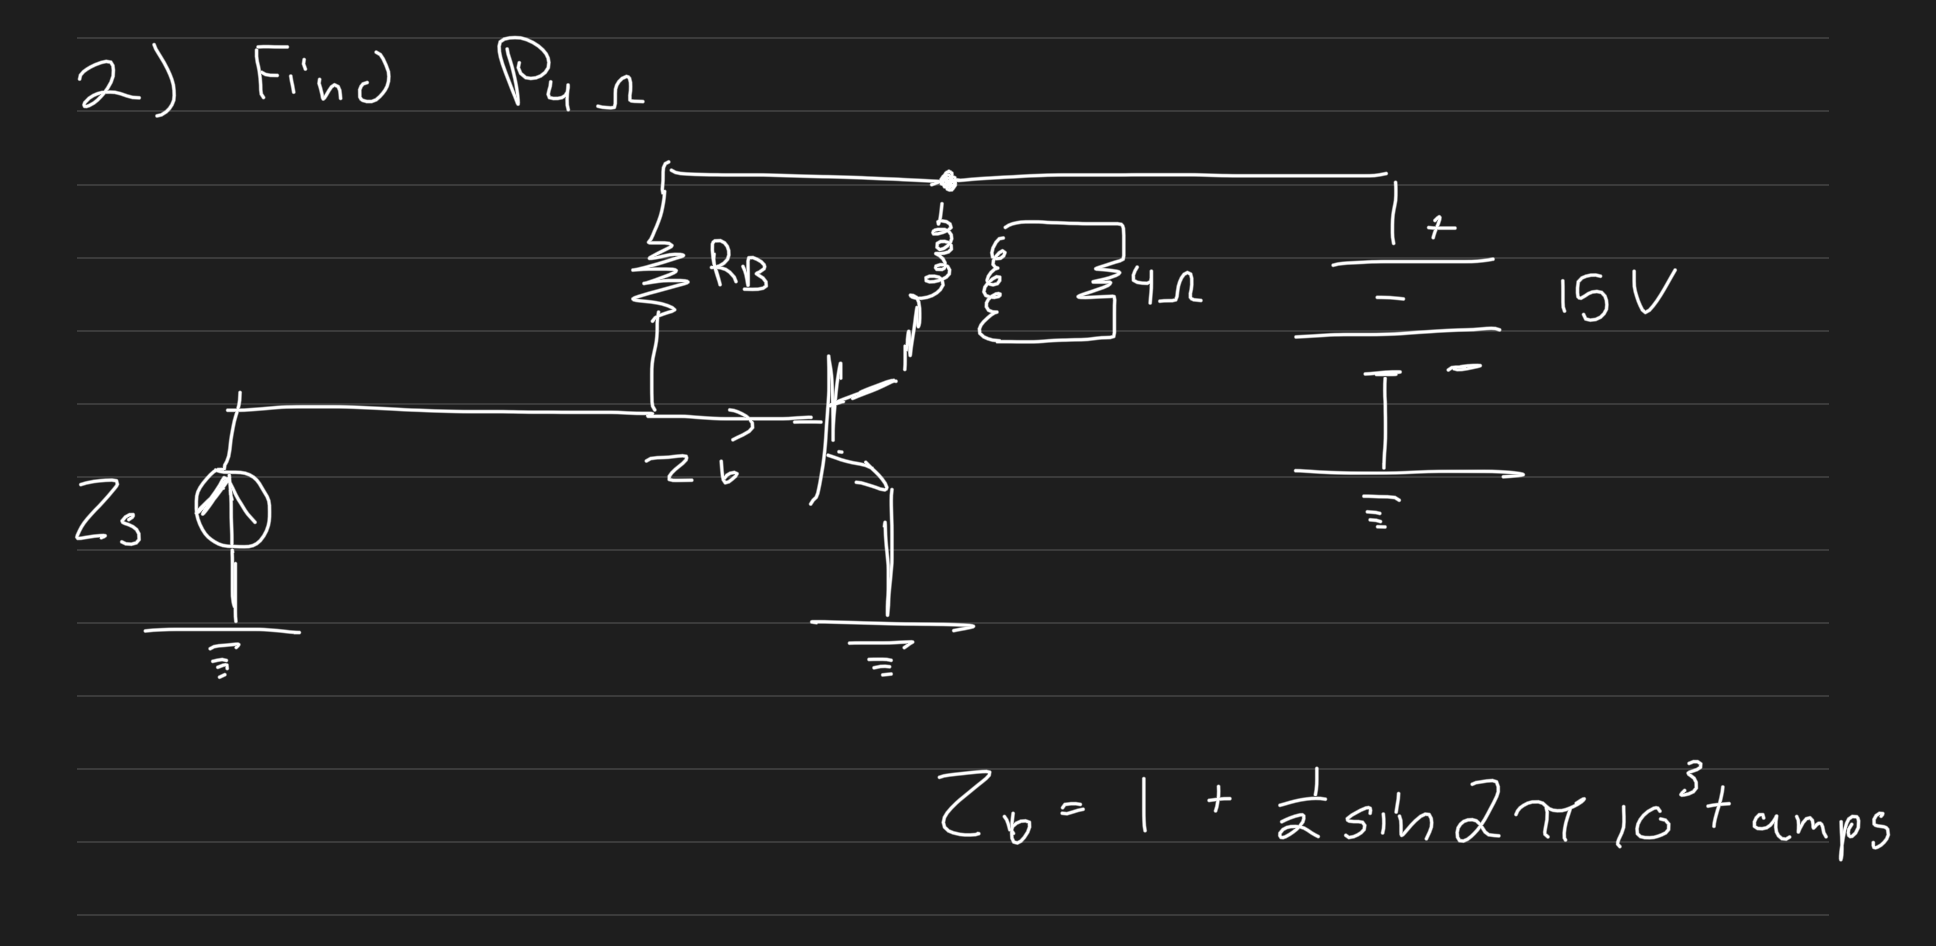 2) Find P4Ω
RB
+
4Ω
15 V
-
Ib
Is
Ib = 1 + 1/2 sin 2π 10³t amps